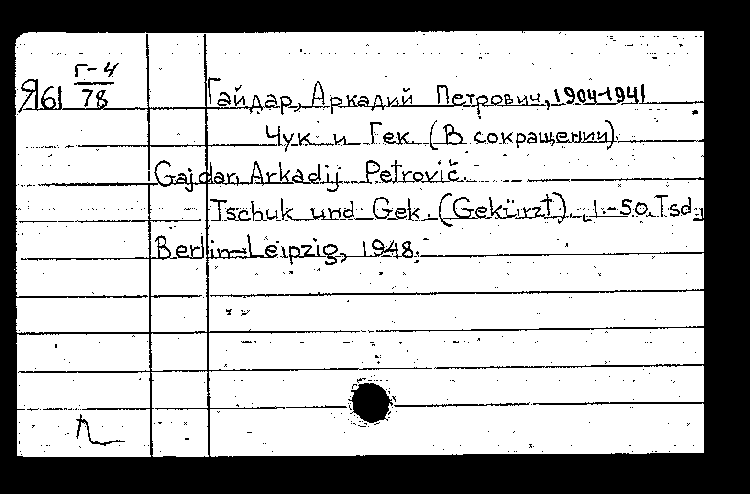 Г-4
Я61 78
Гайдар, Аркадий Петрович, 1904-1941
Чук и Гек. (В сокращении).
Gajdar, Arkadij Petrovič.
Tschuk und Gek. (Gekürzt). 1.-50. Tsd.
Berlin-Leipzig, 1948.